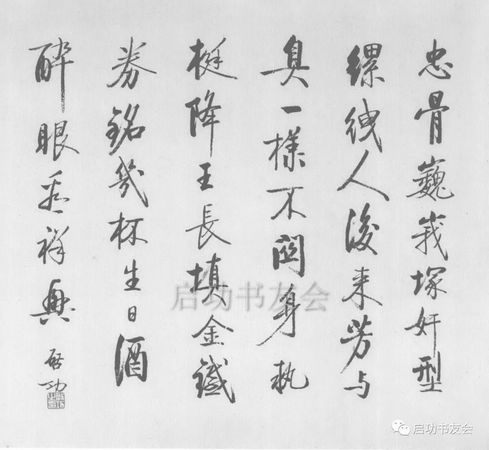 忠骨巍峩塚奸型
縲絏人後来芳与
臭一樣不關身執
梃降王長填金鐵
券銘幾杯生日酒
醉眼看祥興
啓功
启功书友会
启功书友会